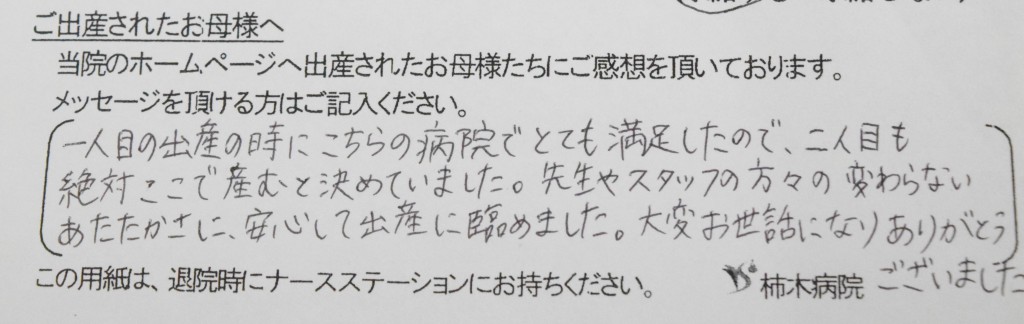 ご出産されたお母様へ
当院のホームページへ出産されたお母様たちにご感想を頂いております。
メッセージを頂ける方はご記入ください。
一人目の出産の時にこちらの病院でとても満足したので、二人目も
絶対ここで産むと決めていました。先生やスタッフの方々の変わらない
あたたかさに、安心して出産に臨めました。大変お世話になりありがとう
ございました
この用紙は、退院時にナースステーションにお持ちください。
柿木病院